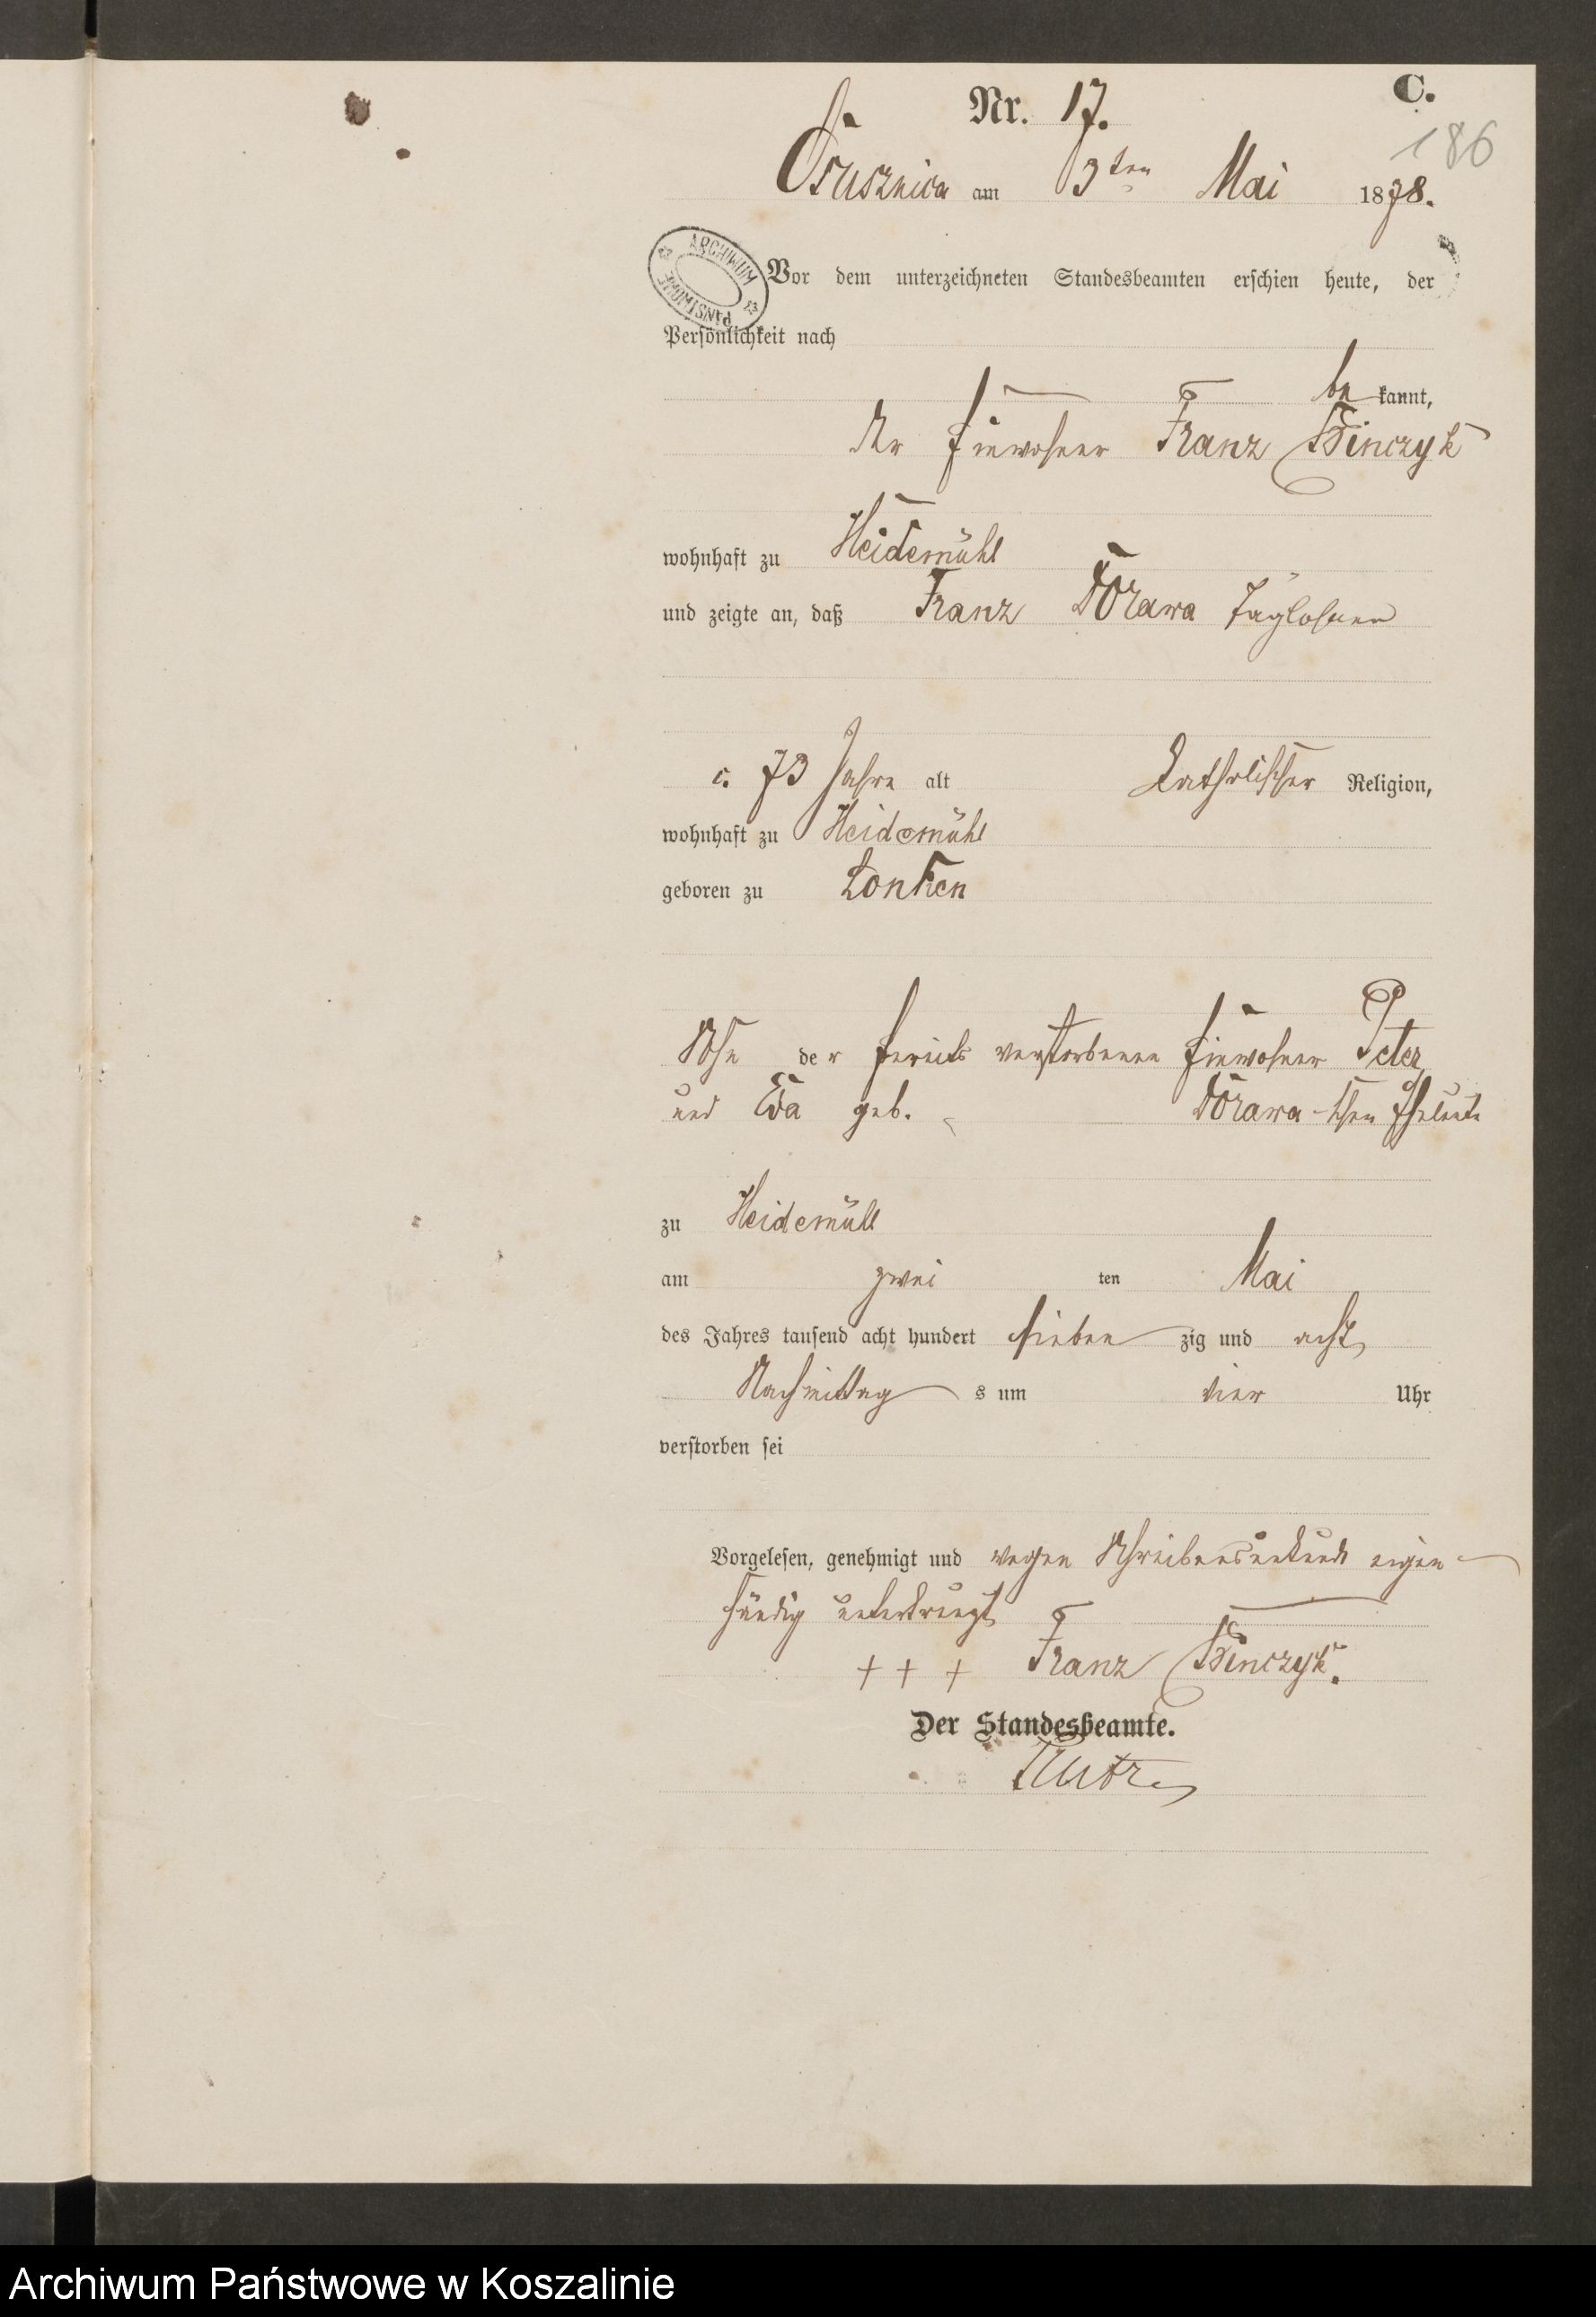 C.
Nr. 17.
186
Osusznica am 3ten Mai 1878.
ARCHIWUM PAŃSTWOWE
Vor dem unterzeichneten Standesbeamten erschien heute, der
Persönlichkeit nach
be kannt,
der Einwohner Franz Binczyk
wohnhaft zu Heidemühl
und zeigte an, daß Franz Dorawa Taglohner
c. 73 Jahre alt Katholischer Religion,
wohnhaft zu Heidemühl
geboren zu Lonken
Sohn der bereits verstorbenen Einwohner Peter
und Eva geb. Dorawa-schen Eheleute
zu Heidemühl
am zwei ten Mai
des Jahres tausend acht hundert sieben zig und acht
Nachmittag s um vier Uhr
verstorben sei
Vorgelesen, genehmigt und wegen Schreibensunkunde eigen
händig unterkreuzt
+ + + Franz Binczyk.
Der Standesbeamte.
Archiwum Państwowe w Koszalinie